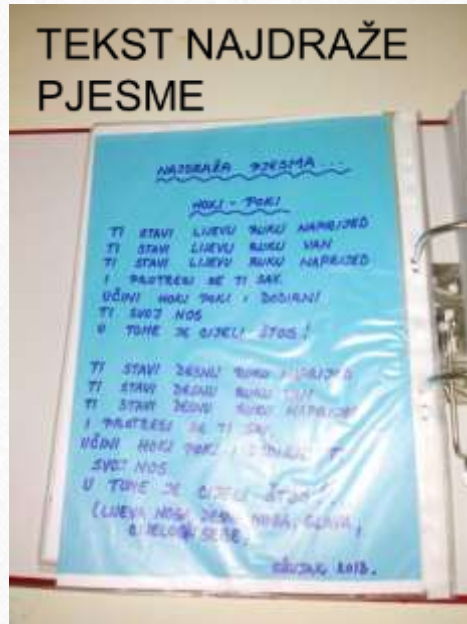 TEKST NAJDRAŽE
PJESME
NAJDRAŽA PJESMA...
HOKI - POKI
TI STAVI LIJEVU RUKU NAPRIJED
TI STAVI LIJEVU RUKU VAN
TI STAVI LIJEVU RUKU NAPRIJED
I PROTRESI SE TI SAV.
UČINI HOKI POKI I DODIRNI
TI SVOJ NOS
U TOME JE CIJELI ŠTOS!
TI STAVI DESNU RUKU NAPRIJED
TI STAVI DESNU RUKU VAN
TI STAVI DESNU RUKU NAPRIJED
I PROTRESI SE TI SAV.
UČINI HOKI POKI I DODIRNI TI
SVOJ NOS
U TOME JE CIJELI ŠTOS!...
(LIJEVA NOGA, DESNA NOGA, GLAVA,
CIJELOG SEBE,
OŽUJAK 2013.